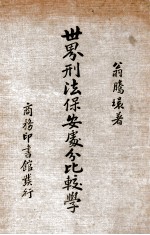 翁騰環著
世界刑法保安處分比較學
商務印書館發行